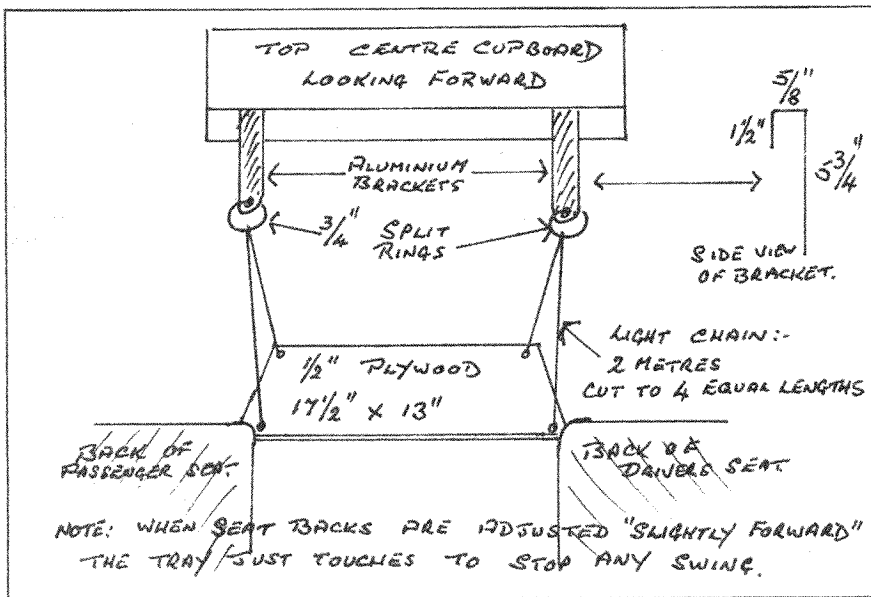 TOP CENTRE CUPBOARD
LOOKING FORWARD
5/8"
1 1/2"
5 3/4"
ALUMINIUM
BRACKETS
3/4" SPLIT
RINGS
SIDE VIEW
OF BRACKET.
LIGHT CHAIN:-
2 METRES
CUT TO 4 EQUAL LENGTHS
1/2" PLYWOOD
17 1/2" x 13"
BACK OF
PASSENGER SEAT.
BACK OF
DRIVERS SEAT.
NOTE: WHEN SEAT BACKS ARE ADJUSTED "SLIGHTLY FORWARD"
THE TRAY JUST TOUCHES TO STOP ANY SWING.